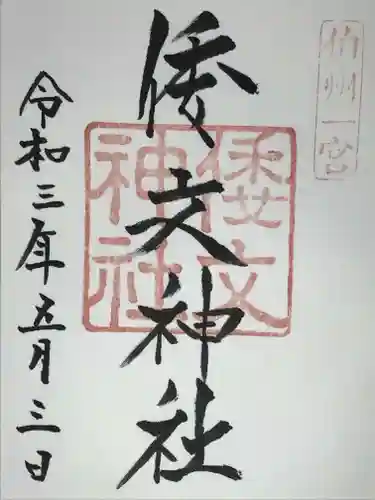 伯州一宮
倭文神社
倭文
神社
令和三年五月三日